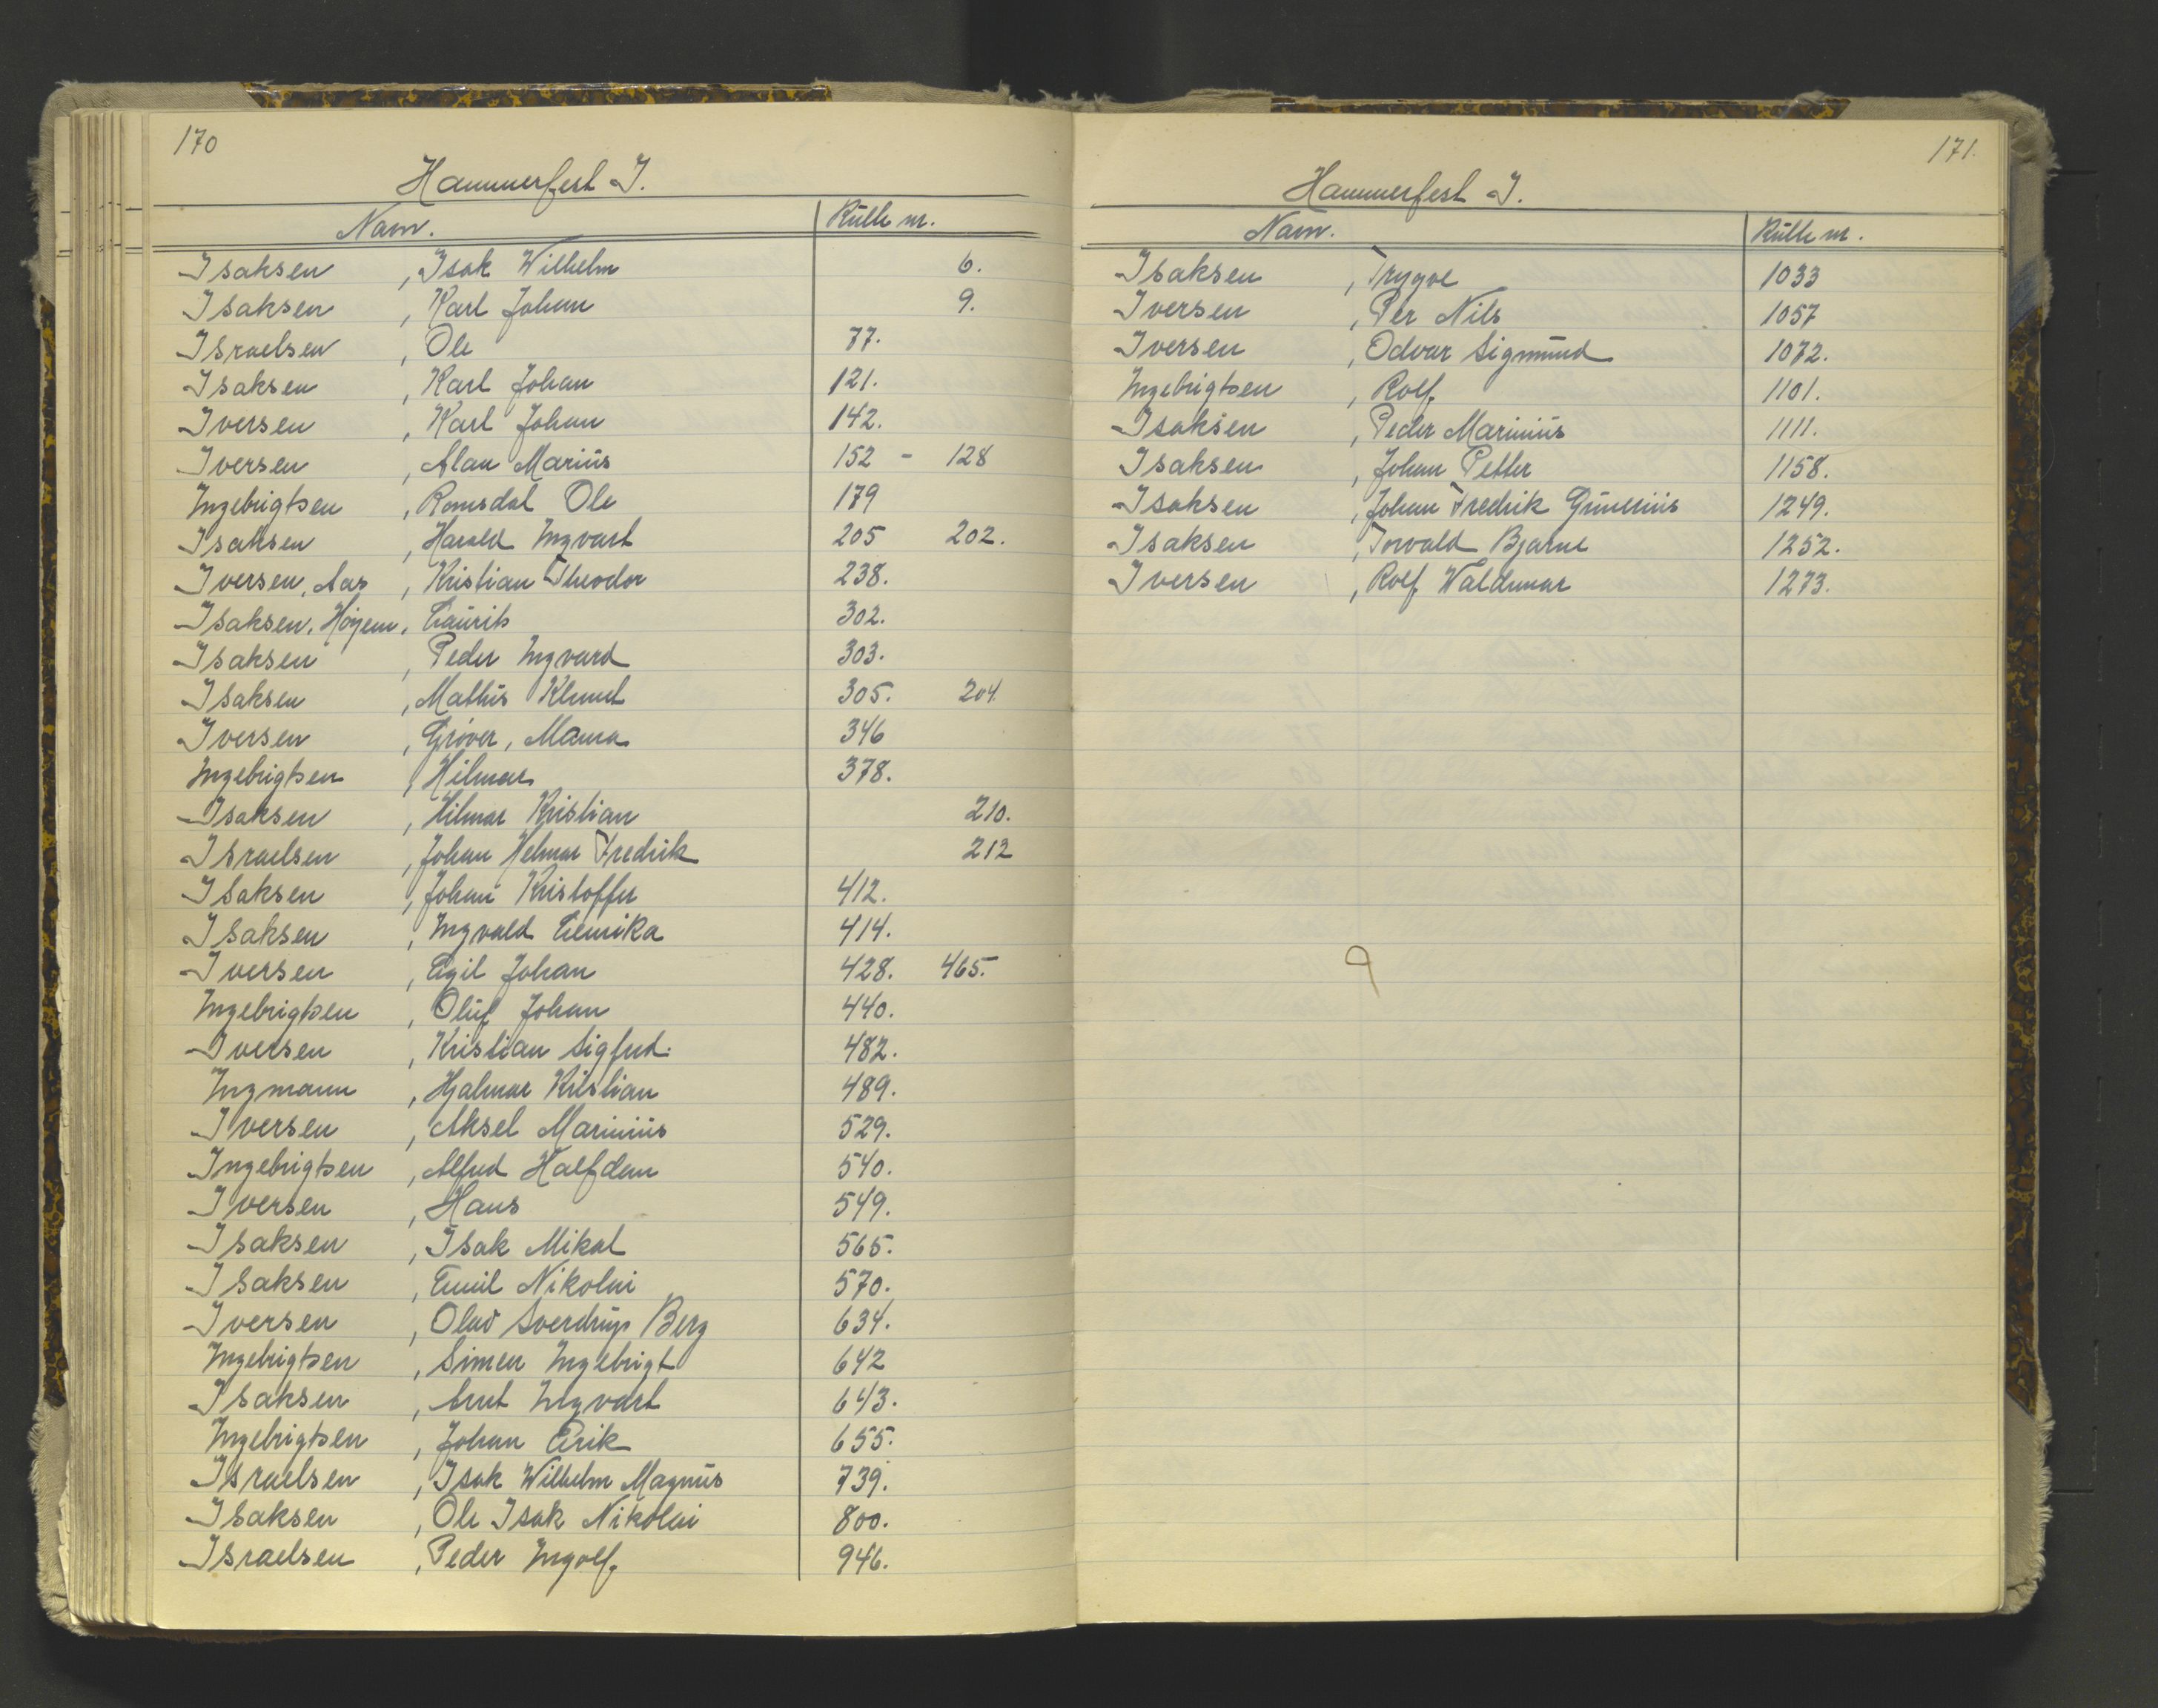 170
Hammerfest I.
Navn. Rulle nr.
Isaksen , Isak Wilhelm 6.
Isaksen , Karl Johan 9.
Israelsen , Ole 77.
Isaksen , Karl Johan 121.
Iversen , Karl Johan 142.
Iversen , Alau Marius 152 - 128
Ingebrigtsen , Romsdal Ole 179
Isaksen , Harald Ingvart 205 202.
Iversen, Aas , Kristian Theodor 238.
Isaksen, Høyem, Laurits 302.
Isaksen , Peder Ingvard 303.
Isaksen , Mathis Klemet 305. 204
Iversen , Grøver, 346
Ingebrigtsen , Hilmar 378.
Isaksen , Hilmar Kristian 210.
Israelsen , Johan Helmar Fredrik 212
Isaksen , Johan Kristoffer 412.
Isaksen , Ingvald 414.
Iversen , Egil Johan 428. 465.
Ingebrigtsen , Oluf Johan 440.
Iversen , Kristian Sigfred. 482.
Ingmann , Hjalmar Kristian 489.
Iversen , Aksel Marinius 529.
Ingebrigtsen , Alfred Halfdan 540.
Iversen , Hans 549.
Isaksen , Isak Mikal 565.
Isaksen , Emil Nikolai 570.
Iversen , Olav Sverdrup Berg 634.
Ingebrigtsen , Simen Ingebrigt 642
Isaksen , Arnt Ingvart 643.
Ingebrigtsen , Johan Erik 655.
Israelsen , Isak Wilhelm Magnus 739.
Isaksen , Ole Isak Nikolai 800.
Israelsen , Peder Ingolf 946.
171.
Hammerfest I.
Navn. Rulle nr.
Isaksen , Trygve 1033
Iversen , Per Nils 1057
Iversen , Odvar Sigmund 1072.
Ingebrigtsen , Rolf 1101.
Isaksen , Peder Marinius 1111.
Isaksen , Johan Petter 1158.
Isaksen , Johan Fredrik Gunerius 1249.
Isaksen , Torvald Bjarne 1252.
Iversen , Rolf Waldemar 1273.
9